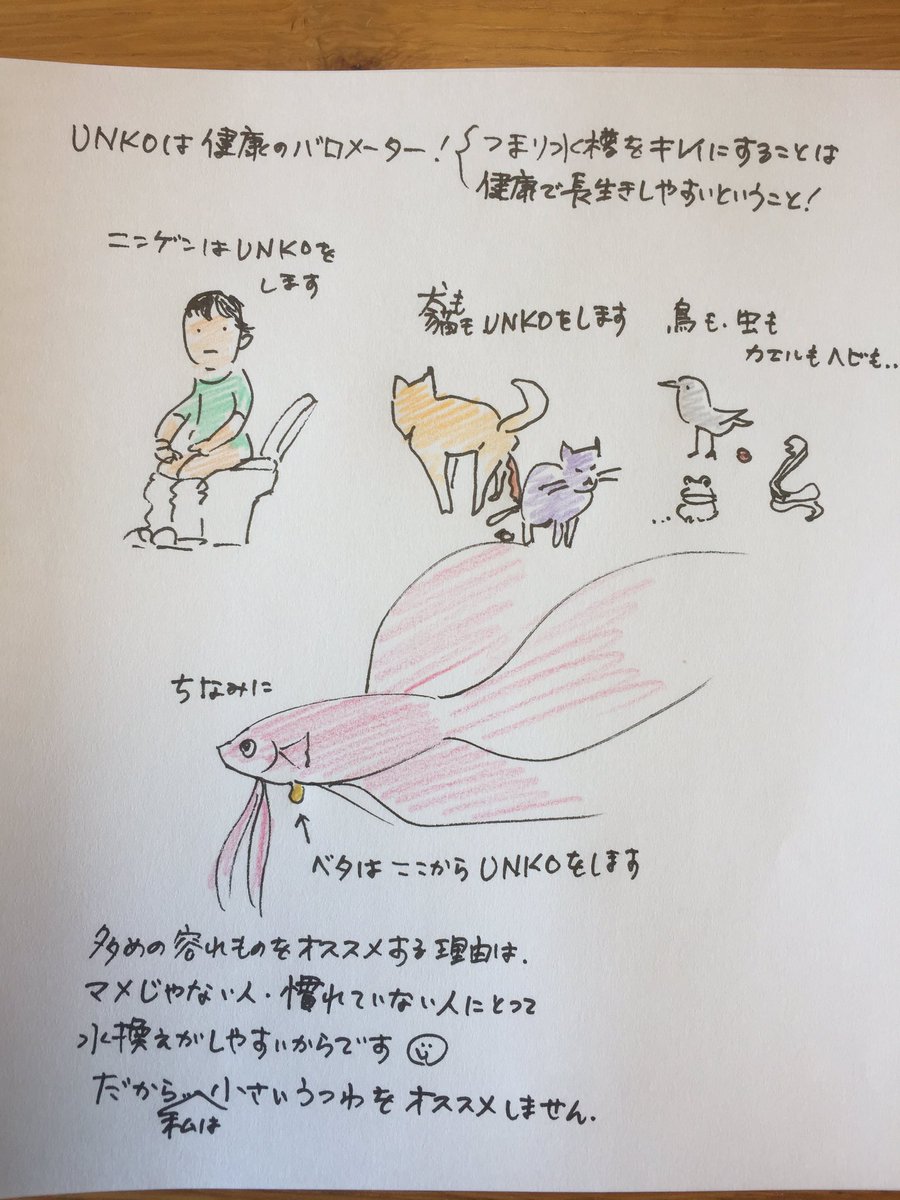 UNKOは健康のバロメーター！
つまり水槽をキレイにすることは
健康で長生きしやすいということ！
ニンゲンはUNKOを
します
犬も
猫もUNKOをします
鳥も・虫も
カエルもヘビも‥
ちなみに
↑
ベタはここからUNKOをします
多めの容れものをオススメする理由は、
マメじゃない人・慣れていない人にとって
水換えがしやすいからです
だから私は小さいうつわをオススメしません.